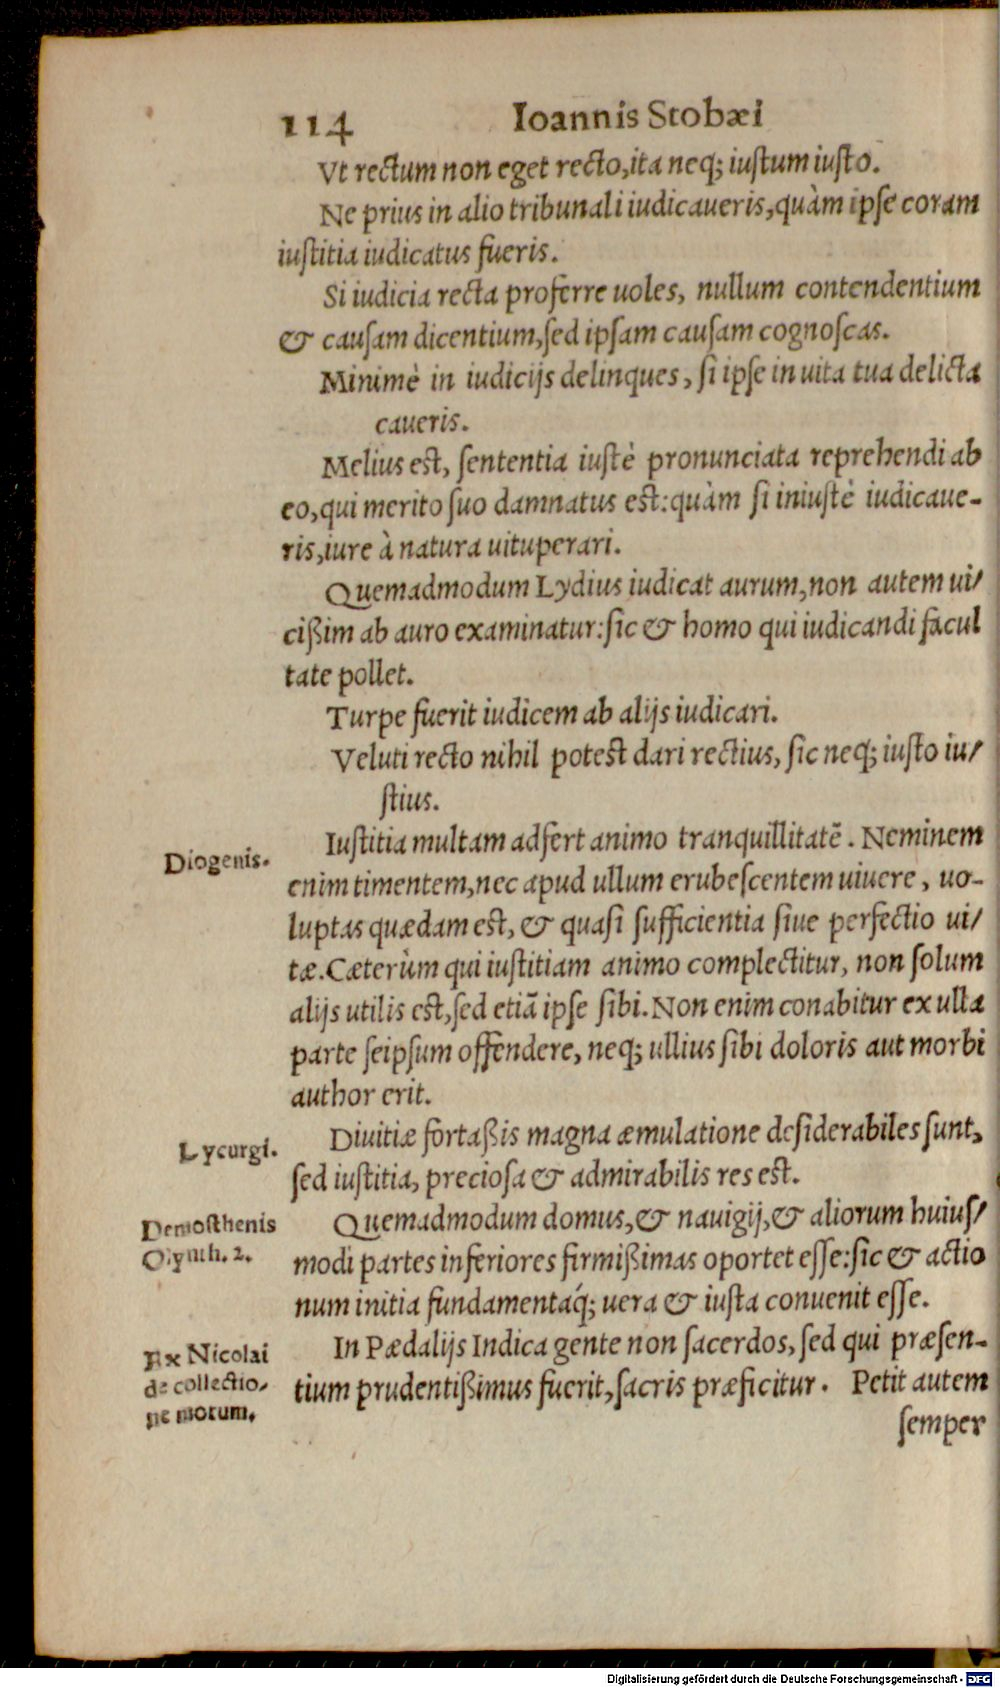 114 Ioannis Stobæi
Vt rectum non eget recto, ita neq; iustum iusto.
Ne prius in alio tribunali iudicaueris, quàm ipse coram
iustitia iudicatus fueris.
Si iudicia recta proferre uoles, nullum contendentium
& causam dicentium, sed ipsam causam cognoscas.
Minimè in iudicijs delinques, si ipse in uita tua delicta
caueris.
Melius est, sententia iustè pronunciata reprehendi ab
eo, qui merito suo damnatus est: quàm si iniustè iudicaue-
ris, iure à natura uituperari.
Quemadmodum Lydius iudicat aurum, non autem ui/
cißim ab auro examinatur: sic & homo qui iudicandi facul
tate pollet.
Turpe fuerit iudicem ab alijs iudicari.
Veluti recto nihil potest dari rectius, sic neq; iusto iu/
stius.
Diogenis.
Iustitia multam adfert animo tranquillitatē. Neminem
enim timentem, nec apud ullum erubescentem uiuere, uo-
luptas quædam est, & quasi sufficientia siue perfectio ui/
tæ. Cæterùm qui iustitiam animo complectitur, non solum
alijs utilis est, sed etiā ipse sibi. Non enim conabitur ex ulla
parte seipsum offendere, neq; ullius sibi doloris aut morbi
author erit.
Lycurgi.
Diuitiæ fortaßis magna æmulatione desiderabiles sunt,
sed iustitia, preciosa & admirabilis res est.
Demosthenis
Olynth. 2.
Quemadmodum domus, & nauigij, & aliorum huius/
modi partes inferiores firmißimas oportet esse: sic & actio
num initia fundamentaq́; uera & iusta conuenit esse.
Ex Nicolai
de collectio/
ne morum.
In Pædalijs Indica gente non sacerdos, sed qui præsen-
tium prudentißimus fuerit, sacris præficitur. Petit autem
semper
Digitalisierung gefördert durch die Deutsche Forschungsgemeinschaft - DFG